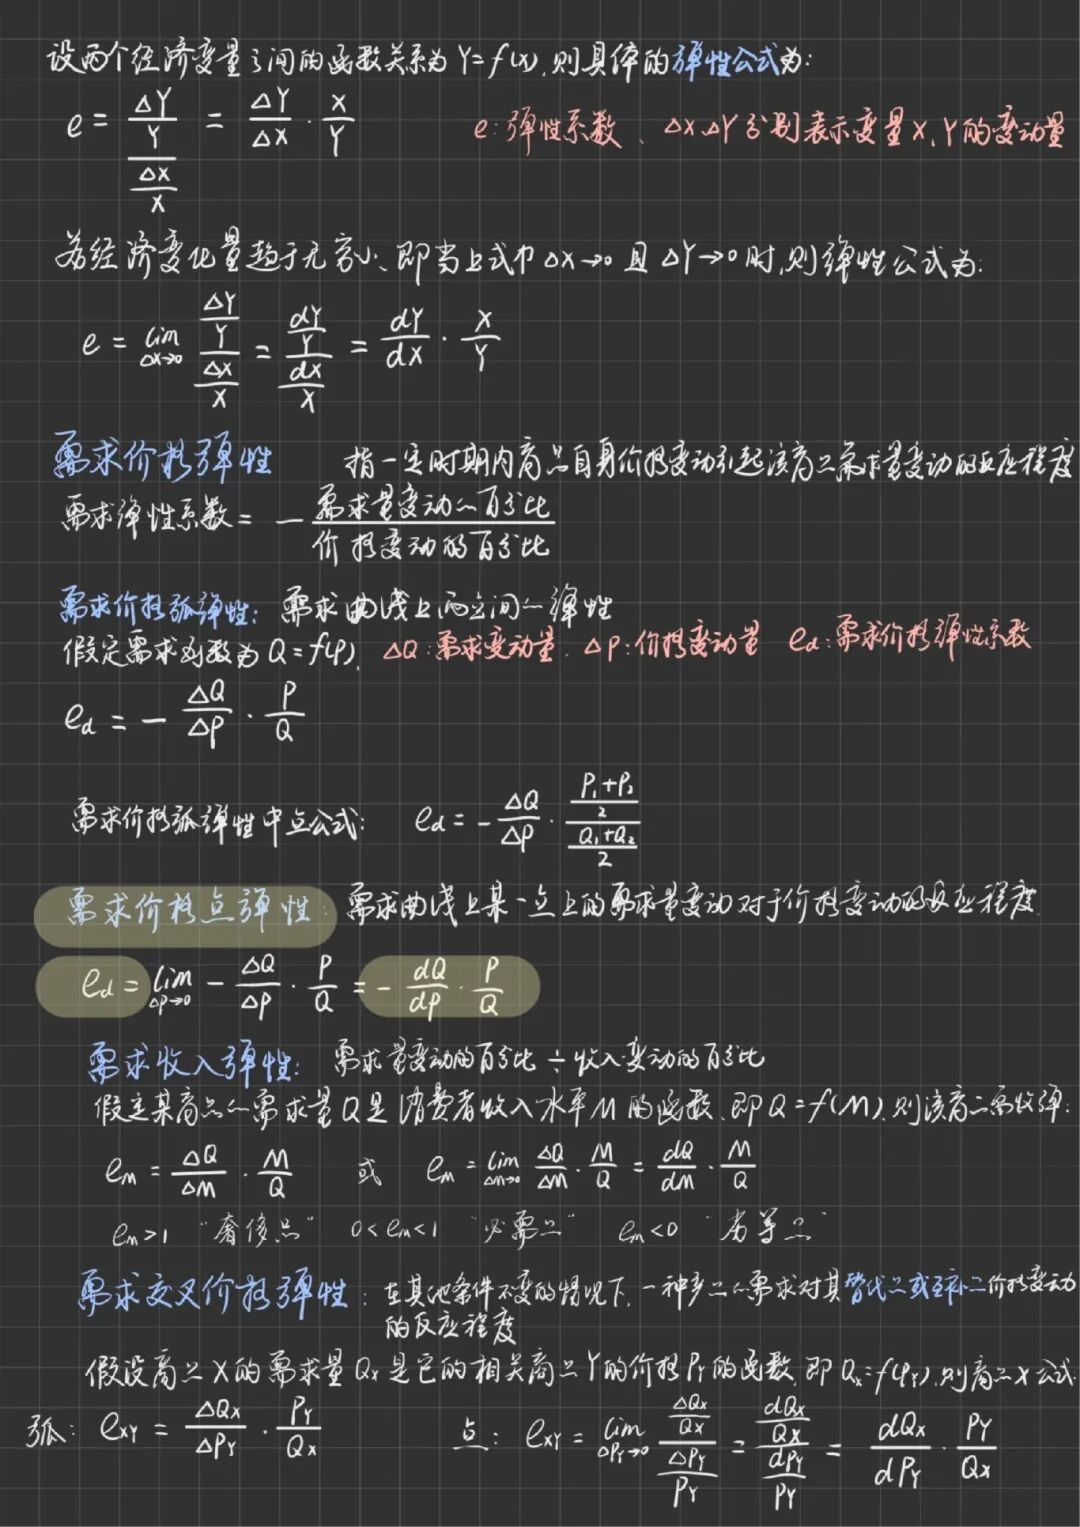 设两个经济变量之间的函数关系为Y=f(x),则具体的弹性公式为:
e = (ΔY/Y)/(ΔX/X) = ΔY/ΔX · X/Y
e:弹性系数、ΔX、ΔY分别表示变量X、Y的变动量
若经济变化量趋于无穷小、即当上式中ΔX→0且ΔY→0时,则弹性公式为:
e = lim ΔX→0 (ΔY/Y)/(ΔX/X) = (dY/Y)/(dX/X) = dY/dX · X/Y
需求价格弹性 指一定时期内商品自身价格变动引起该商品需求量变动的反应程度
需求弹性系数 = - 需求量变动的百分比/价格变动的百分比
需求价格弧弹性: 需求曲线上两点间的弹性
假定需求函数为Q=f(P), ΔQ:需求变动量. ΔP:价格变动量 ed:需求价格弹性系数
ed = - ΔQ/ΔP · P/Q
需求价格弧弹性中点公式: ed = - ΔQ/ΔP · ((P₁+P₂)/2)/((Q₁+Q₂)/2)
需求价格点弹性: 需求曲线上某一点上的需求量变动对于价格变动的反应程度.
ed = lim ΔP→0 - ΔQ/ΔP · P/Q = - dQ/dP · P/Q
需求收入弹性: 需求量变动的百分比÷收入变动的百分比
假定某商品的需求量Q是消费者收入水平M的函数,即Q=f(M),则该商品需收弹:
em = ΔQ/ΔM · M/Q 或 em = lim ΔM→0 ΔQ/ΔM · M/Q = dQ/dM · M/Q
em>1 "奢侈品" 0<em<1 "必需品" em<0 "劣等品"
需求交叉价格弹性: 在其他条件不变的情况下,一种商品的需求对其替代品或互补品价格变动
的反应程度
假设商品X的需求量Qx是它的相关商品Y的价格PY的函数,即Qx=f(PY),则商品X公式:
弧: exY = ΔQx/ΔPY · PY/Qx 点: exY = lim ΔPY→0 (ΔQx/Qx)/(ΔPY/PY) = (dQx/Qx)/(dPY/PY) = dQx/dPY · PY/Qx